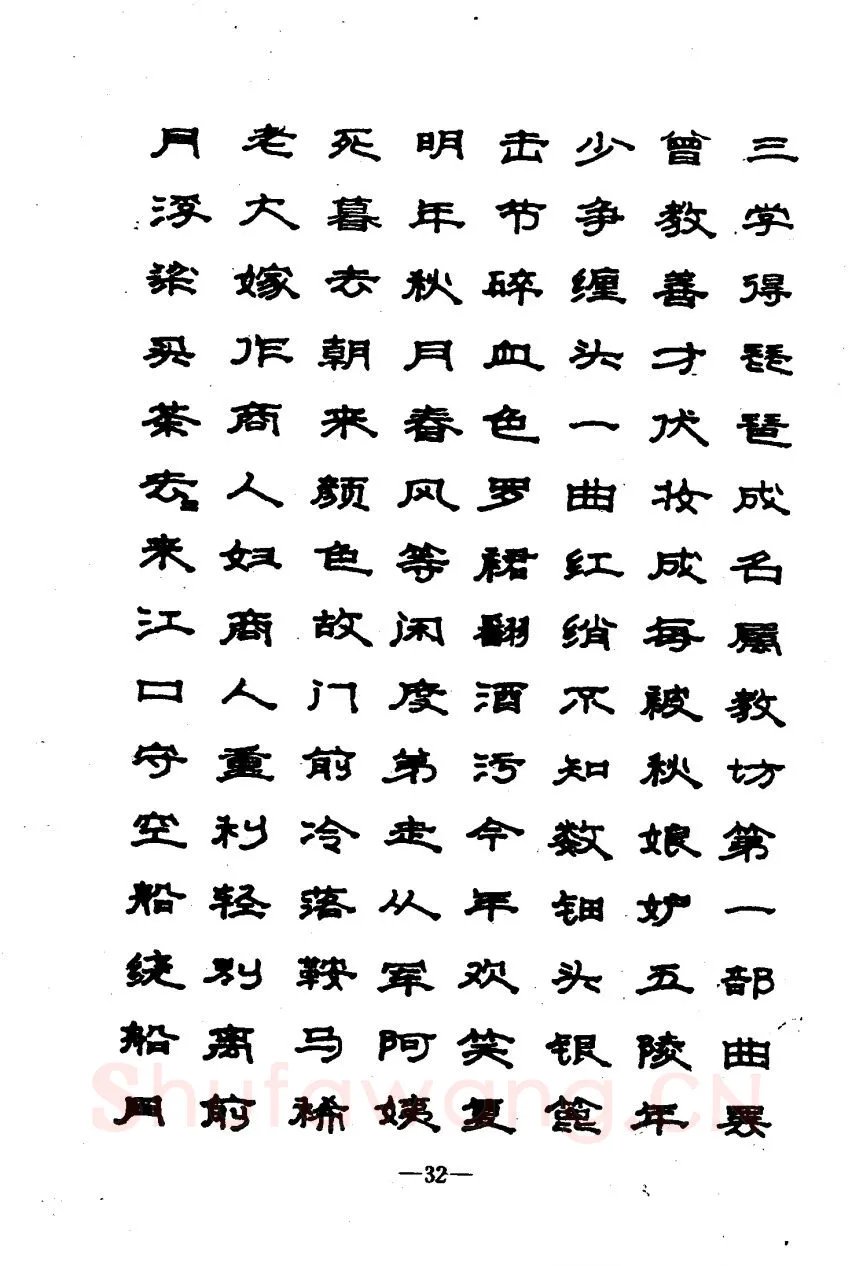 三学得琵琶成名属教坊第一部曲罢
曾教善才伏妆成每被秋娘妒五陵年
少争缠头一曲红绡不知数钿头银篦
击节碎血色罗裙翻酒污今年欢笑复
明年秋月春风等闲度第走从军阿姨
死暮去朝来颜色故门前冷落鞍马稀
老大嫁作商人妇商人重利轻别离前
月浮梁买茶去〻来江口守空船绕船月
—32—
Shufawang.CN